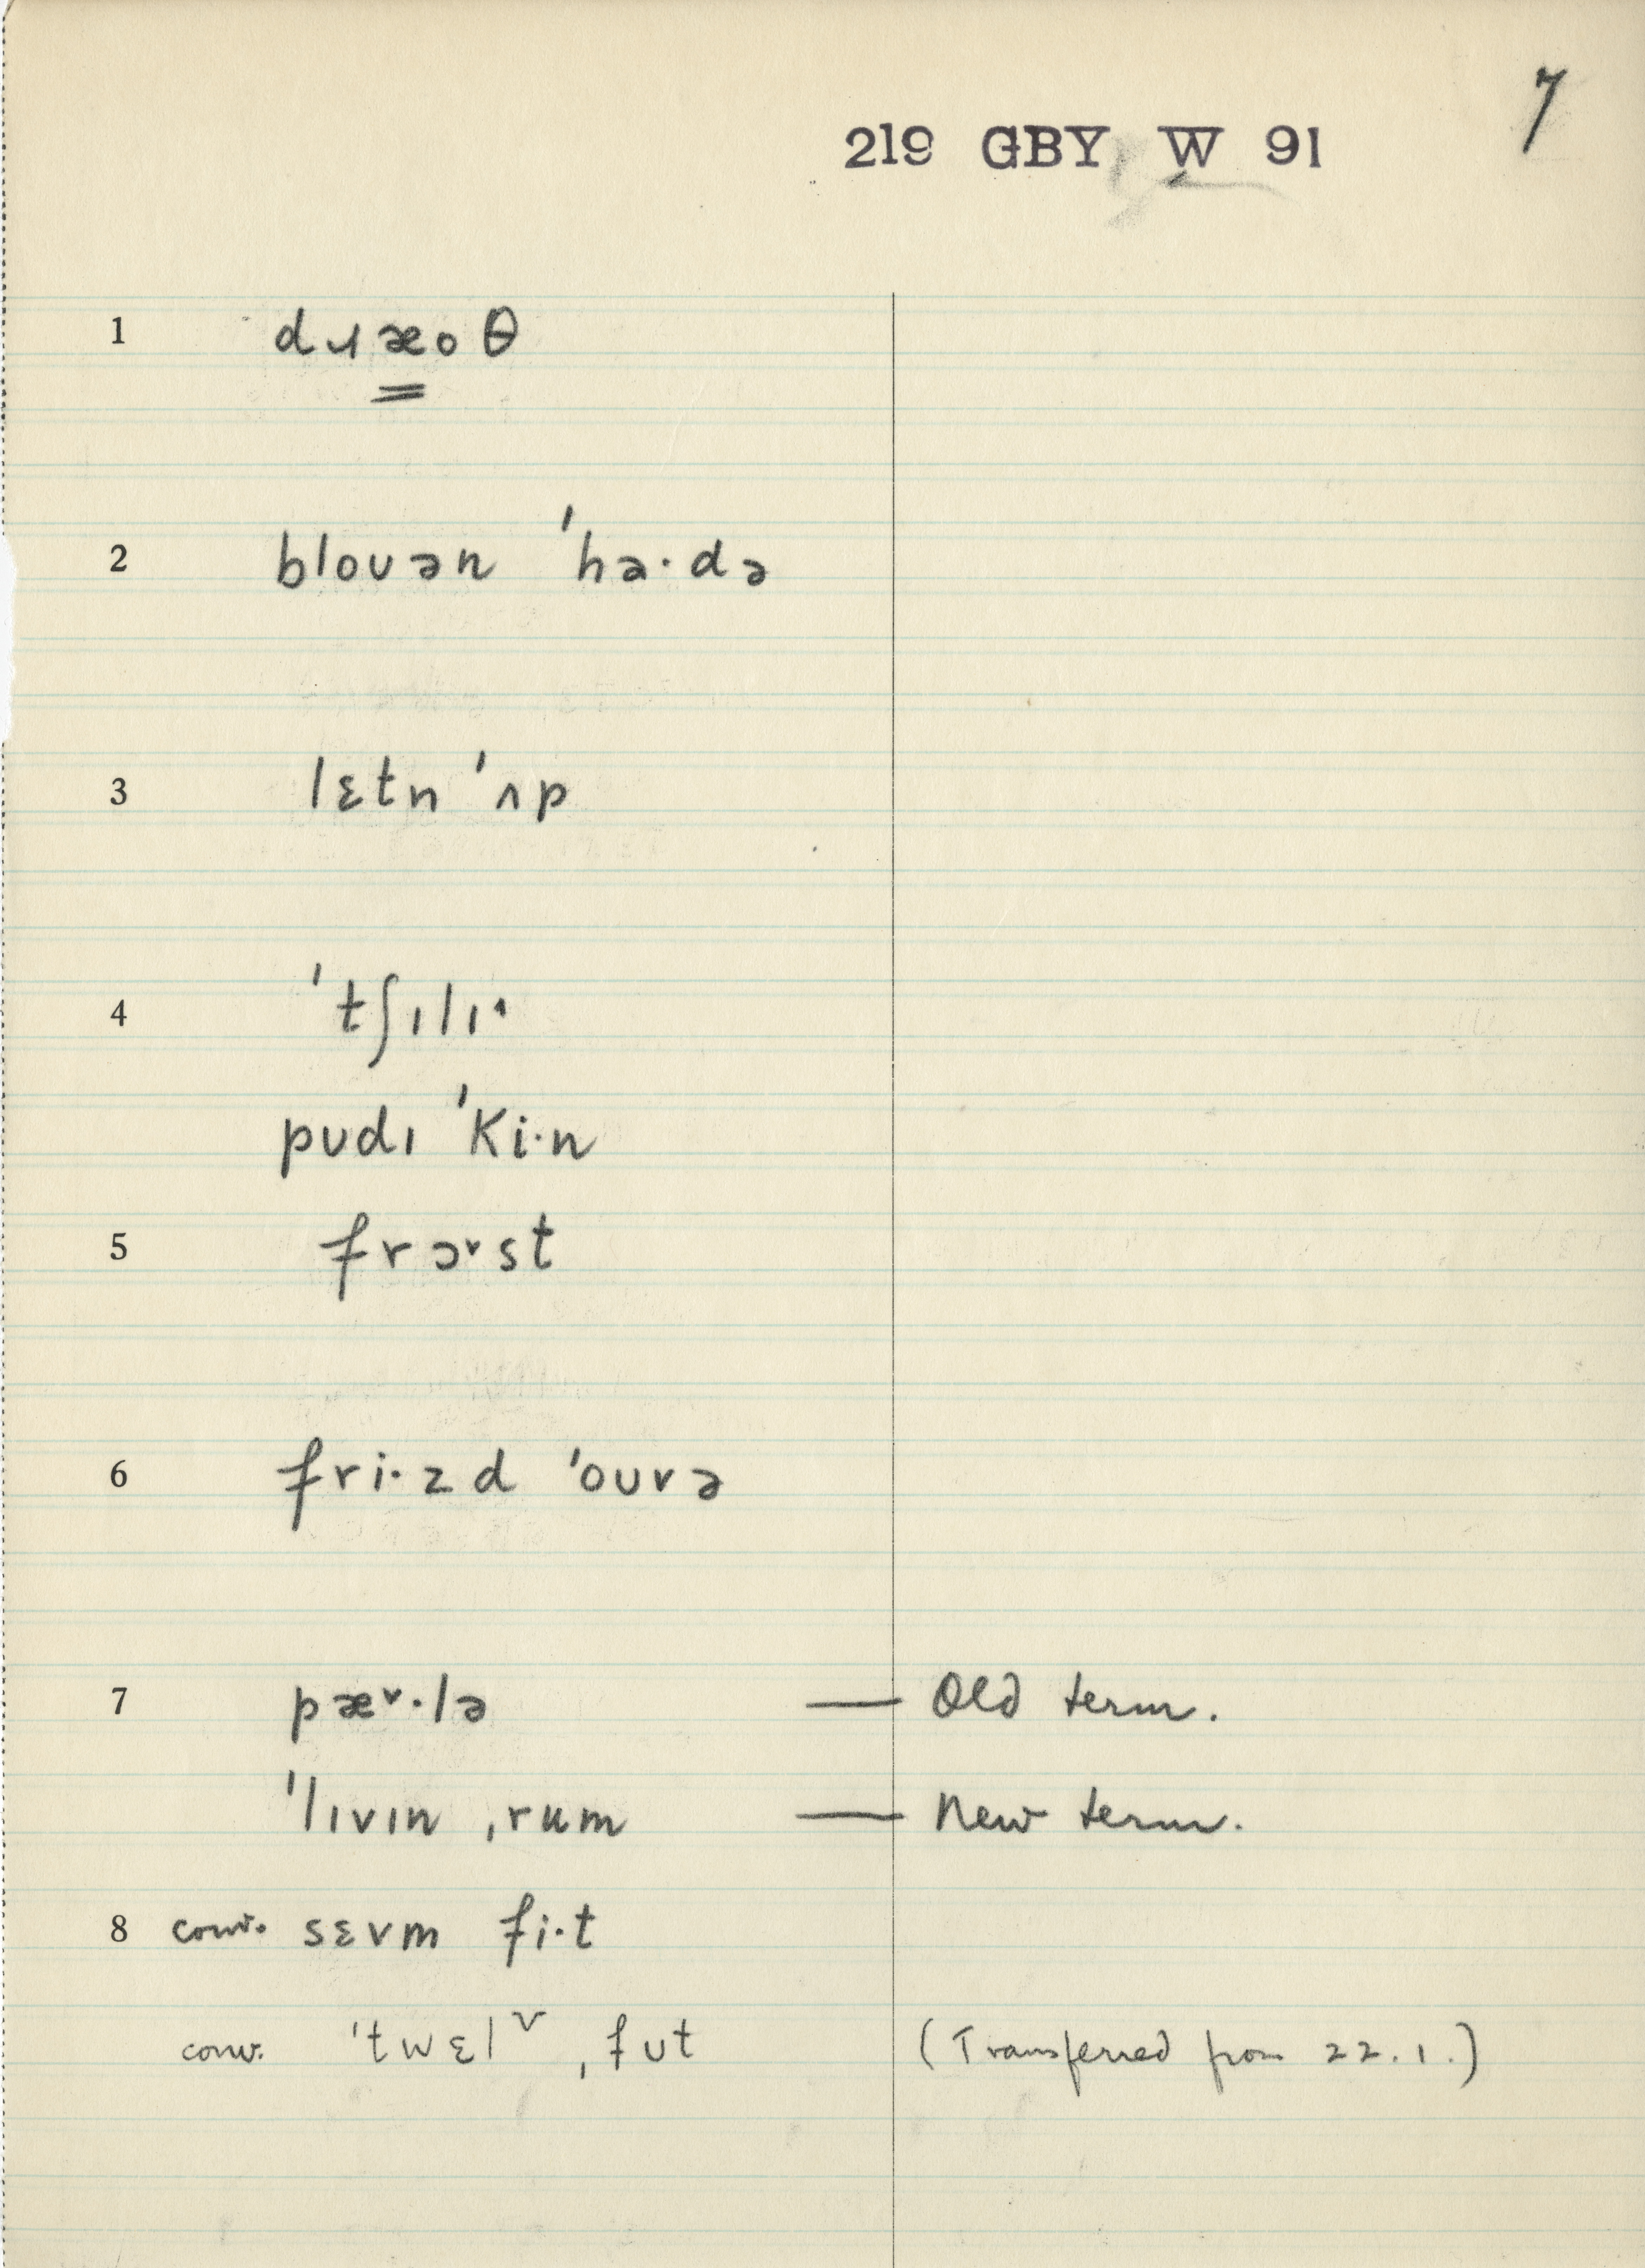 7
219 GBY W 91
1 dɹæoθ
2 blouən 'hə·də
3 lɛtn 'ʌp
4 'tʃɪlɪ˄
pudɪ 'ki·n
5 frɔ˅st
6 fri·zd 'ouvə
7 pæ˅·lə — Old term.
'lɪvɪn ˌrum — New term.
8 conv. sɛvm fi·t
conv. 'twɛlᵛ ˌfut (Transferred from 22.1.)